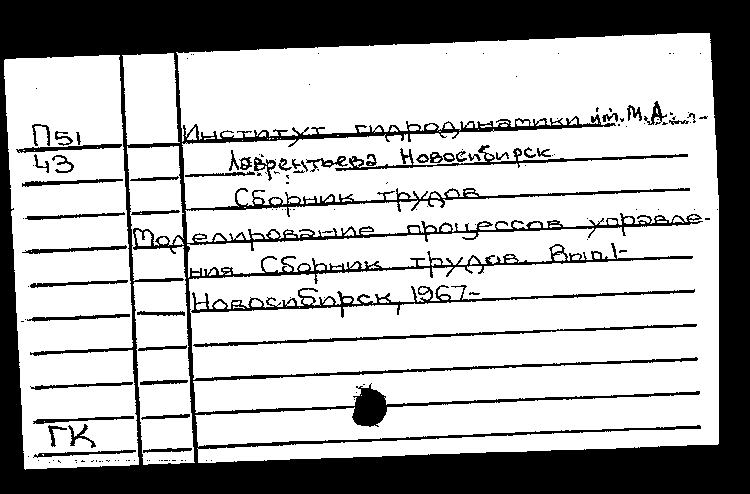 П51 Институт гидродинамики им. М.А.
43 Лаврентьева. Новосибирск.
Сборник трудов
Моделирование процессов управле-
ния. Сборник трудов. Вып.1-
Новосибирск, 1967-
ГК